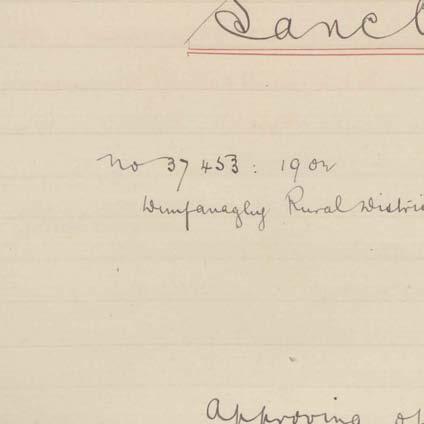 Sanc
No 37453 : 1902
Dunfanaghy Rural Distri
Approving of